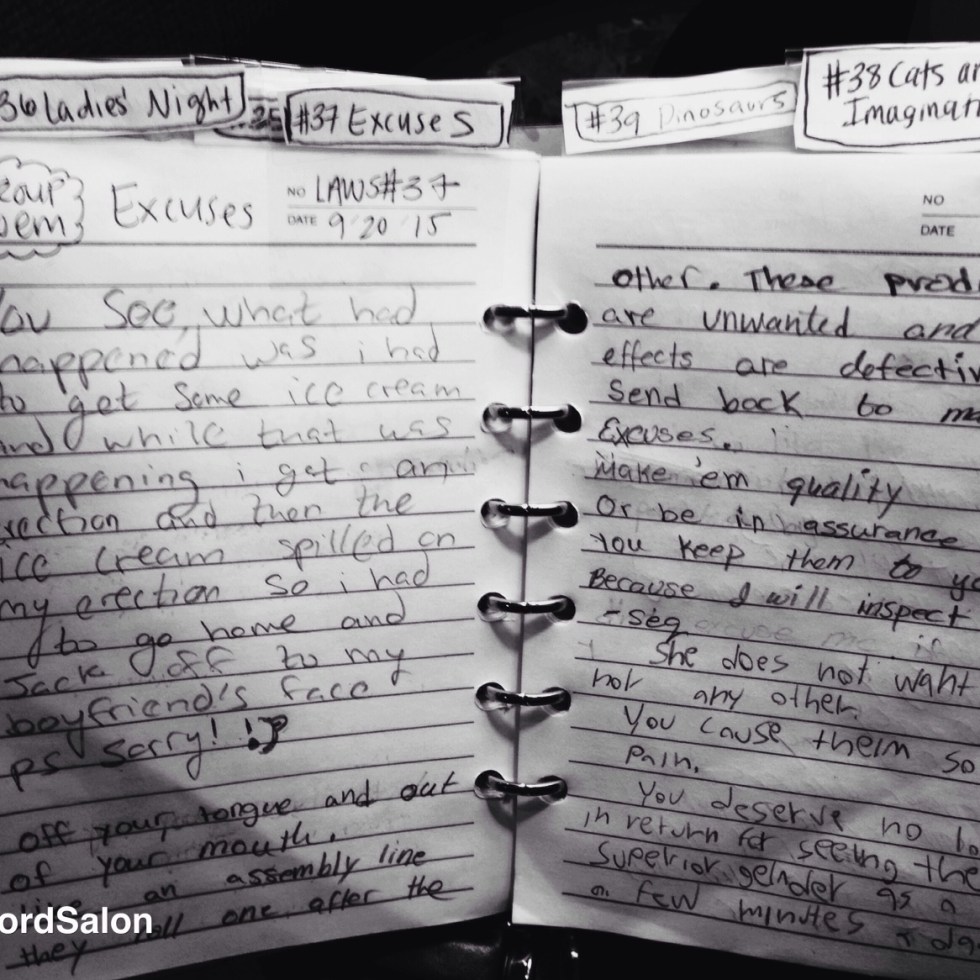 36 Ladies' Night
#37 Excuses
#39 Dinosaurs
#38 Cats an
Imaginat
Excuses
NO LAWS#37
DATE 9 20 '15
You See, what had
happened was i had
to get some ice cream
and while that was
happening i get an
erection and then the
ice cream spilled on
my erection so i had
to go home and
Jack off to my
boyfriend's face
ps Sorry!
off your tongue and out
of your mouth.
an assembly line
they roll one after the
NO
DATE
other. These prod
are unwanted and
effects are defectiv
Send back to m
Excuses.
Make 'em quality
Or be in assurance
You keep them to y
Because I will inspect
She does not want
nor any other.
You cause them so
Pain.
You deserve no
in return for seeing the
Superior gender as a
few minutes
ordSalon